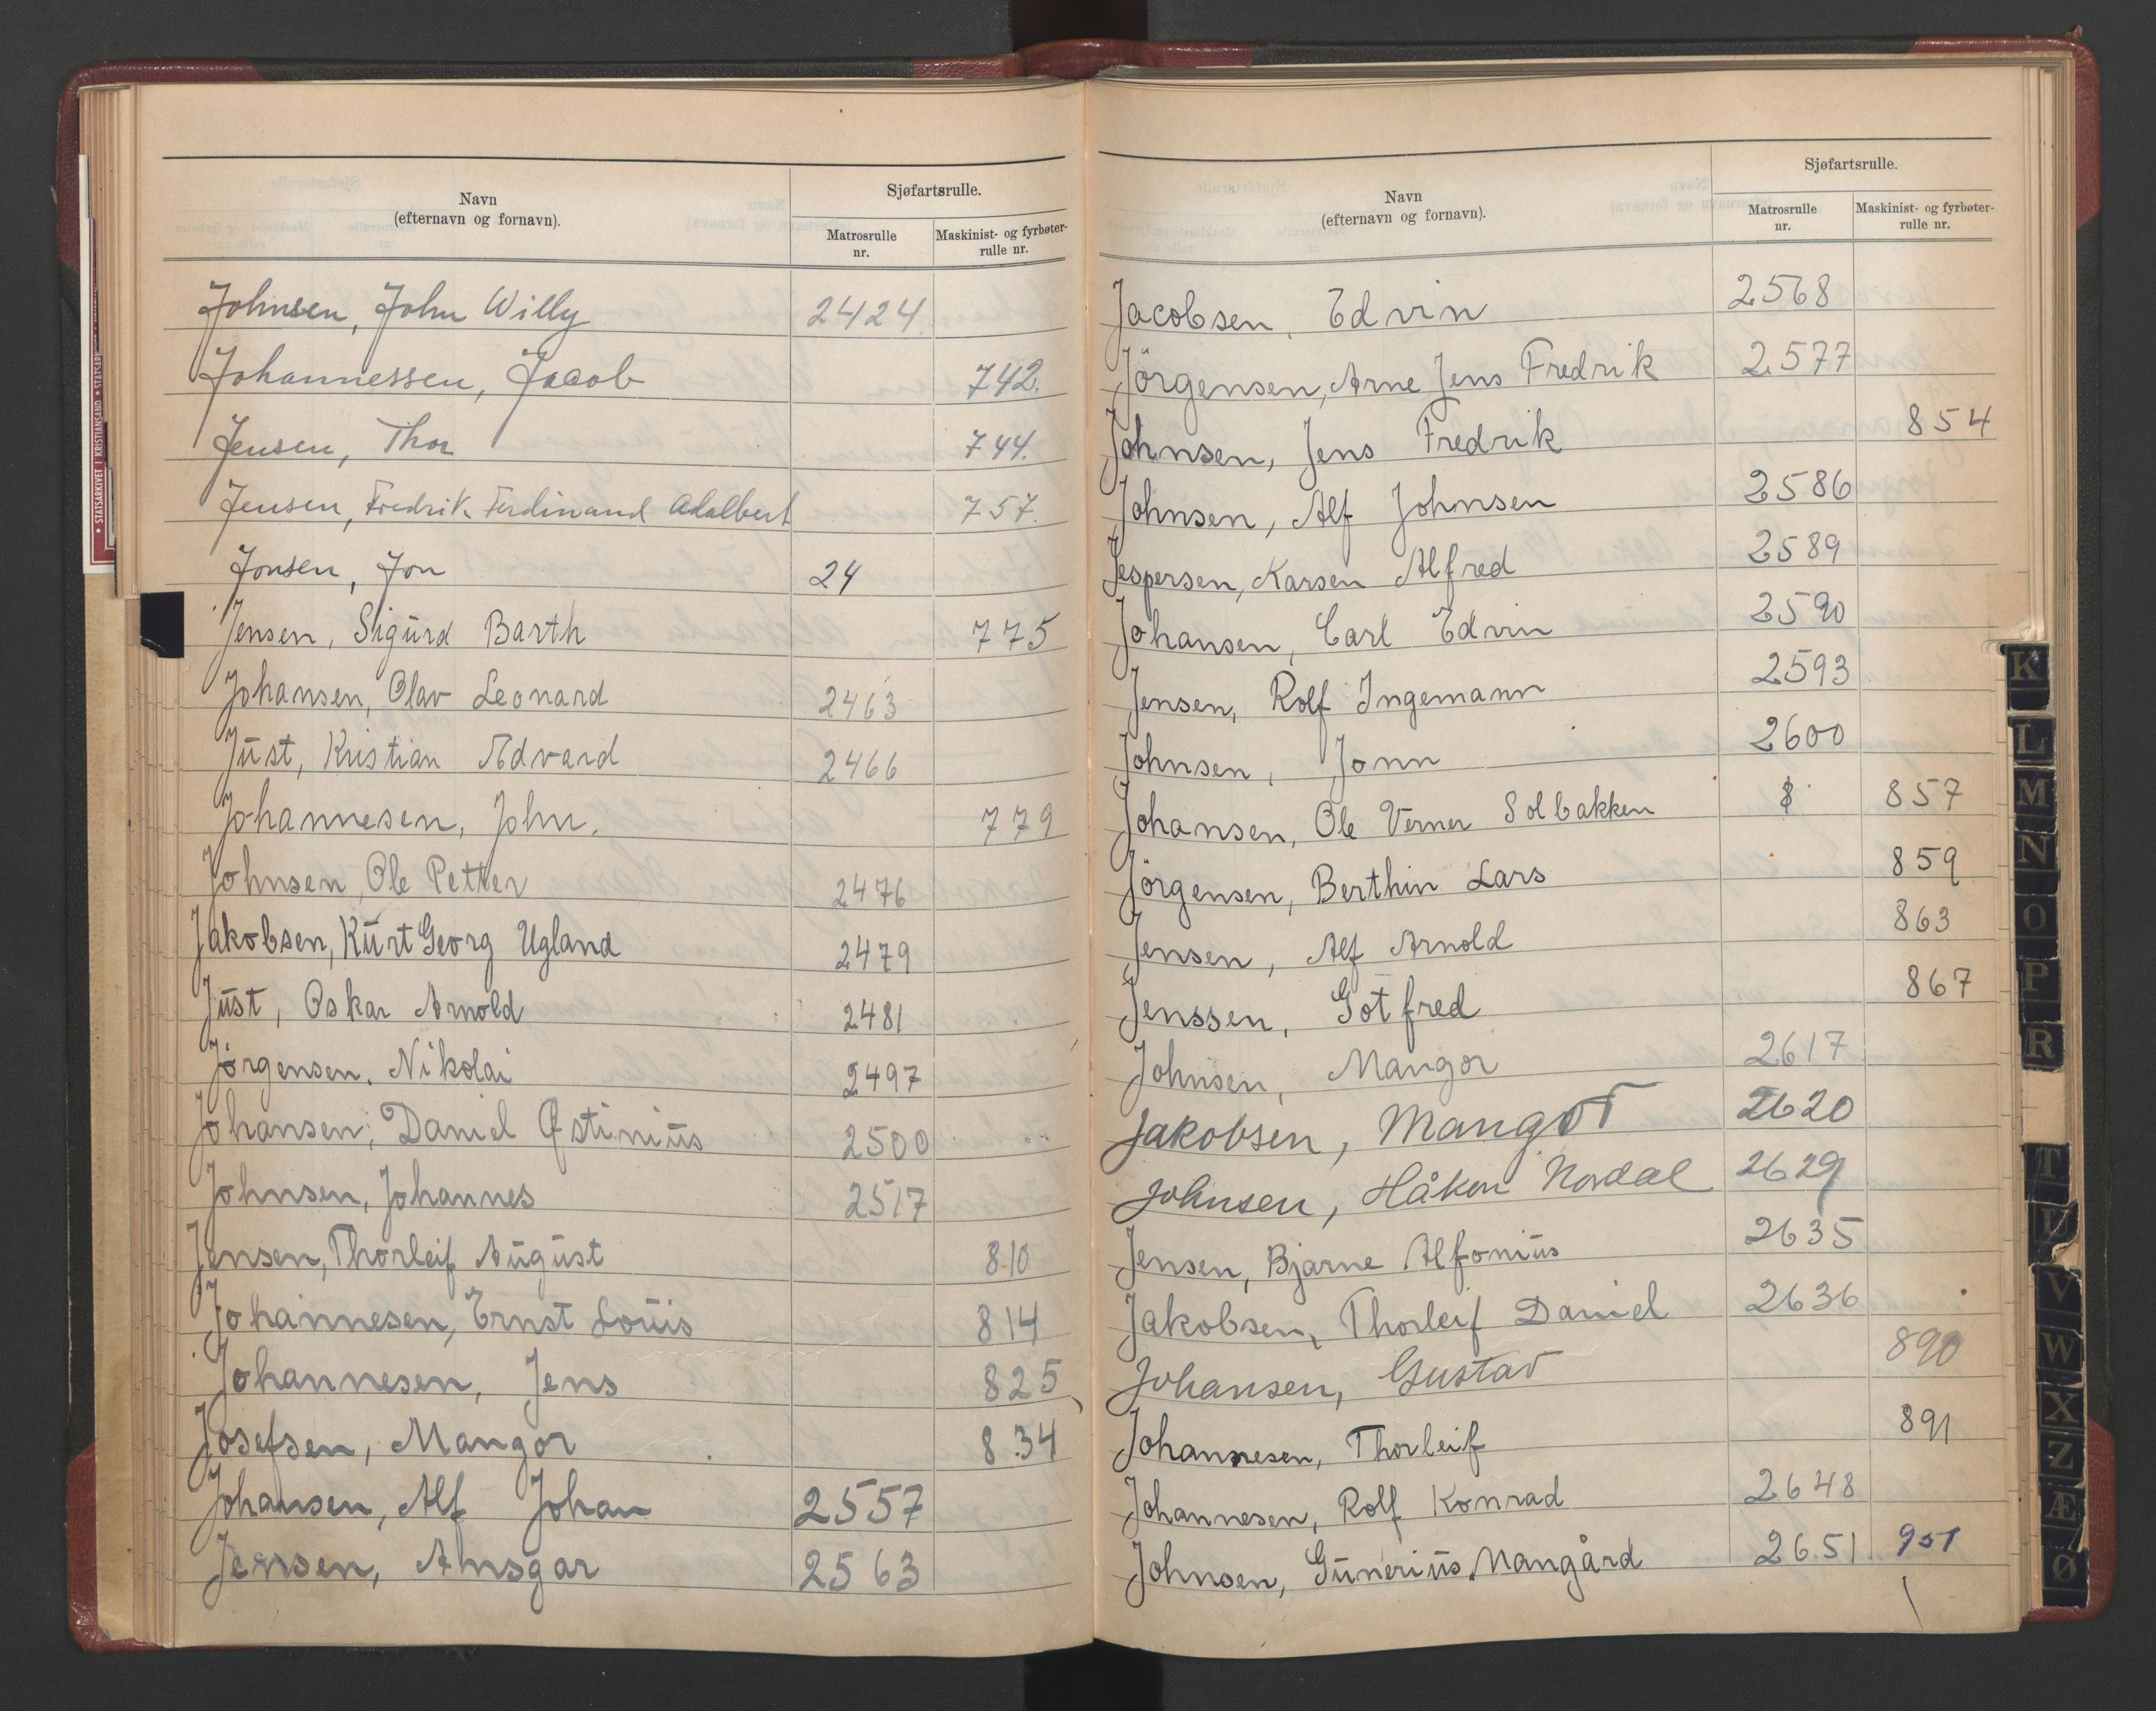 Navn
(efternavn og fornavn).
Sjøfartsrulle.
Matrosrulle
nr.
Maskinist- og fyrbøter-
rulle nr.
Johnsen, John Willy 2424
Johannessen, Jacob 742.
Jensen, Thor 744.
Jensen, Fredrik Ferdinand Adalbert 757.
Jonsen, Jon 24
Jensen, Sigurd Barth 775
Johansen, Olav Leonard 2463
Just, Kristian Edvard 2466
Johannesen, John. 779
Johnsen, Ole Petter 2476
Jakobsen, Kurt Georg Ugland 2479
Just, Oskar Arnold 2481
Jörgensen, Nikolai 2497
Johansen, Daniel Østinius 2500
Johnsen, Johannes 2517
Jensen, Thorleif August 810
Johannesen, Ernst Louis 814
Johannesen, Jens 825
Josefsen, Mangor 834
Johansen, Alf Johan 2557
Jensen, Ansgar 2563
Navn
(efternavn og fornavn).
Sjøfartsrulle.
Matrosrulle
nr.
Maskinist- og fyrbøter-
rulle nr.
Jacobsen, Edvin 2568
Jörgensen, Arne Jens Fredrik 2577
Johnsen, Jens Fredrik 854
Johnsen, Alf Johnsen 2586
Jespersen, Karsen Alfred 2589
Johansen, Carl Edvin 2590
Jensen, Rolf Ingemann 2593
Johnsen, Jonn 2600
Johansen, Ole Verner Solbakken 8 857
Jörgensen, Berthin Lars 859
Jensen, Alf Arnold 863
Jenssen, Gotfred 867
Johnsen, Mangor 2617
Jakobsen, Mangor 2620
Johnsen, Håkon Nordal 2629
Jensen, Bjarne Alfonius 2635
Jakobsen, Thorleif Daniel 2636
Johansen, Gustav 890
Johannesen, Thorleif 891
Johannesen, Rolf Konrad 2648
Johnsen, Gunerius Mangård 2651 951
K
L
M
N
O
P
R
T
U
V
W
X
Z
Æ
Ø
STATSARKIVET I KRISTIANSAND